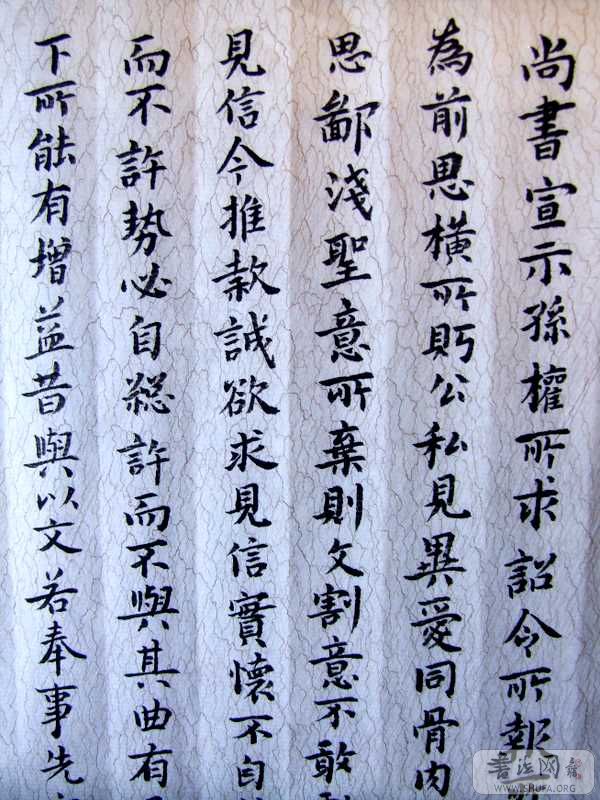 尚書宣示孫權所求詔令所報
為前恩橫所公私見異愛同骨肉
思鄙淺聖意所棄則又割意不敢
見信今推款誠欲求見信實懷不自
而不許勢必自総許而不與其曲有
下所能有增益昔與以文若奉事先
書法网
WWW.SHUFA.ORG